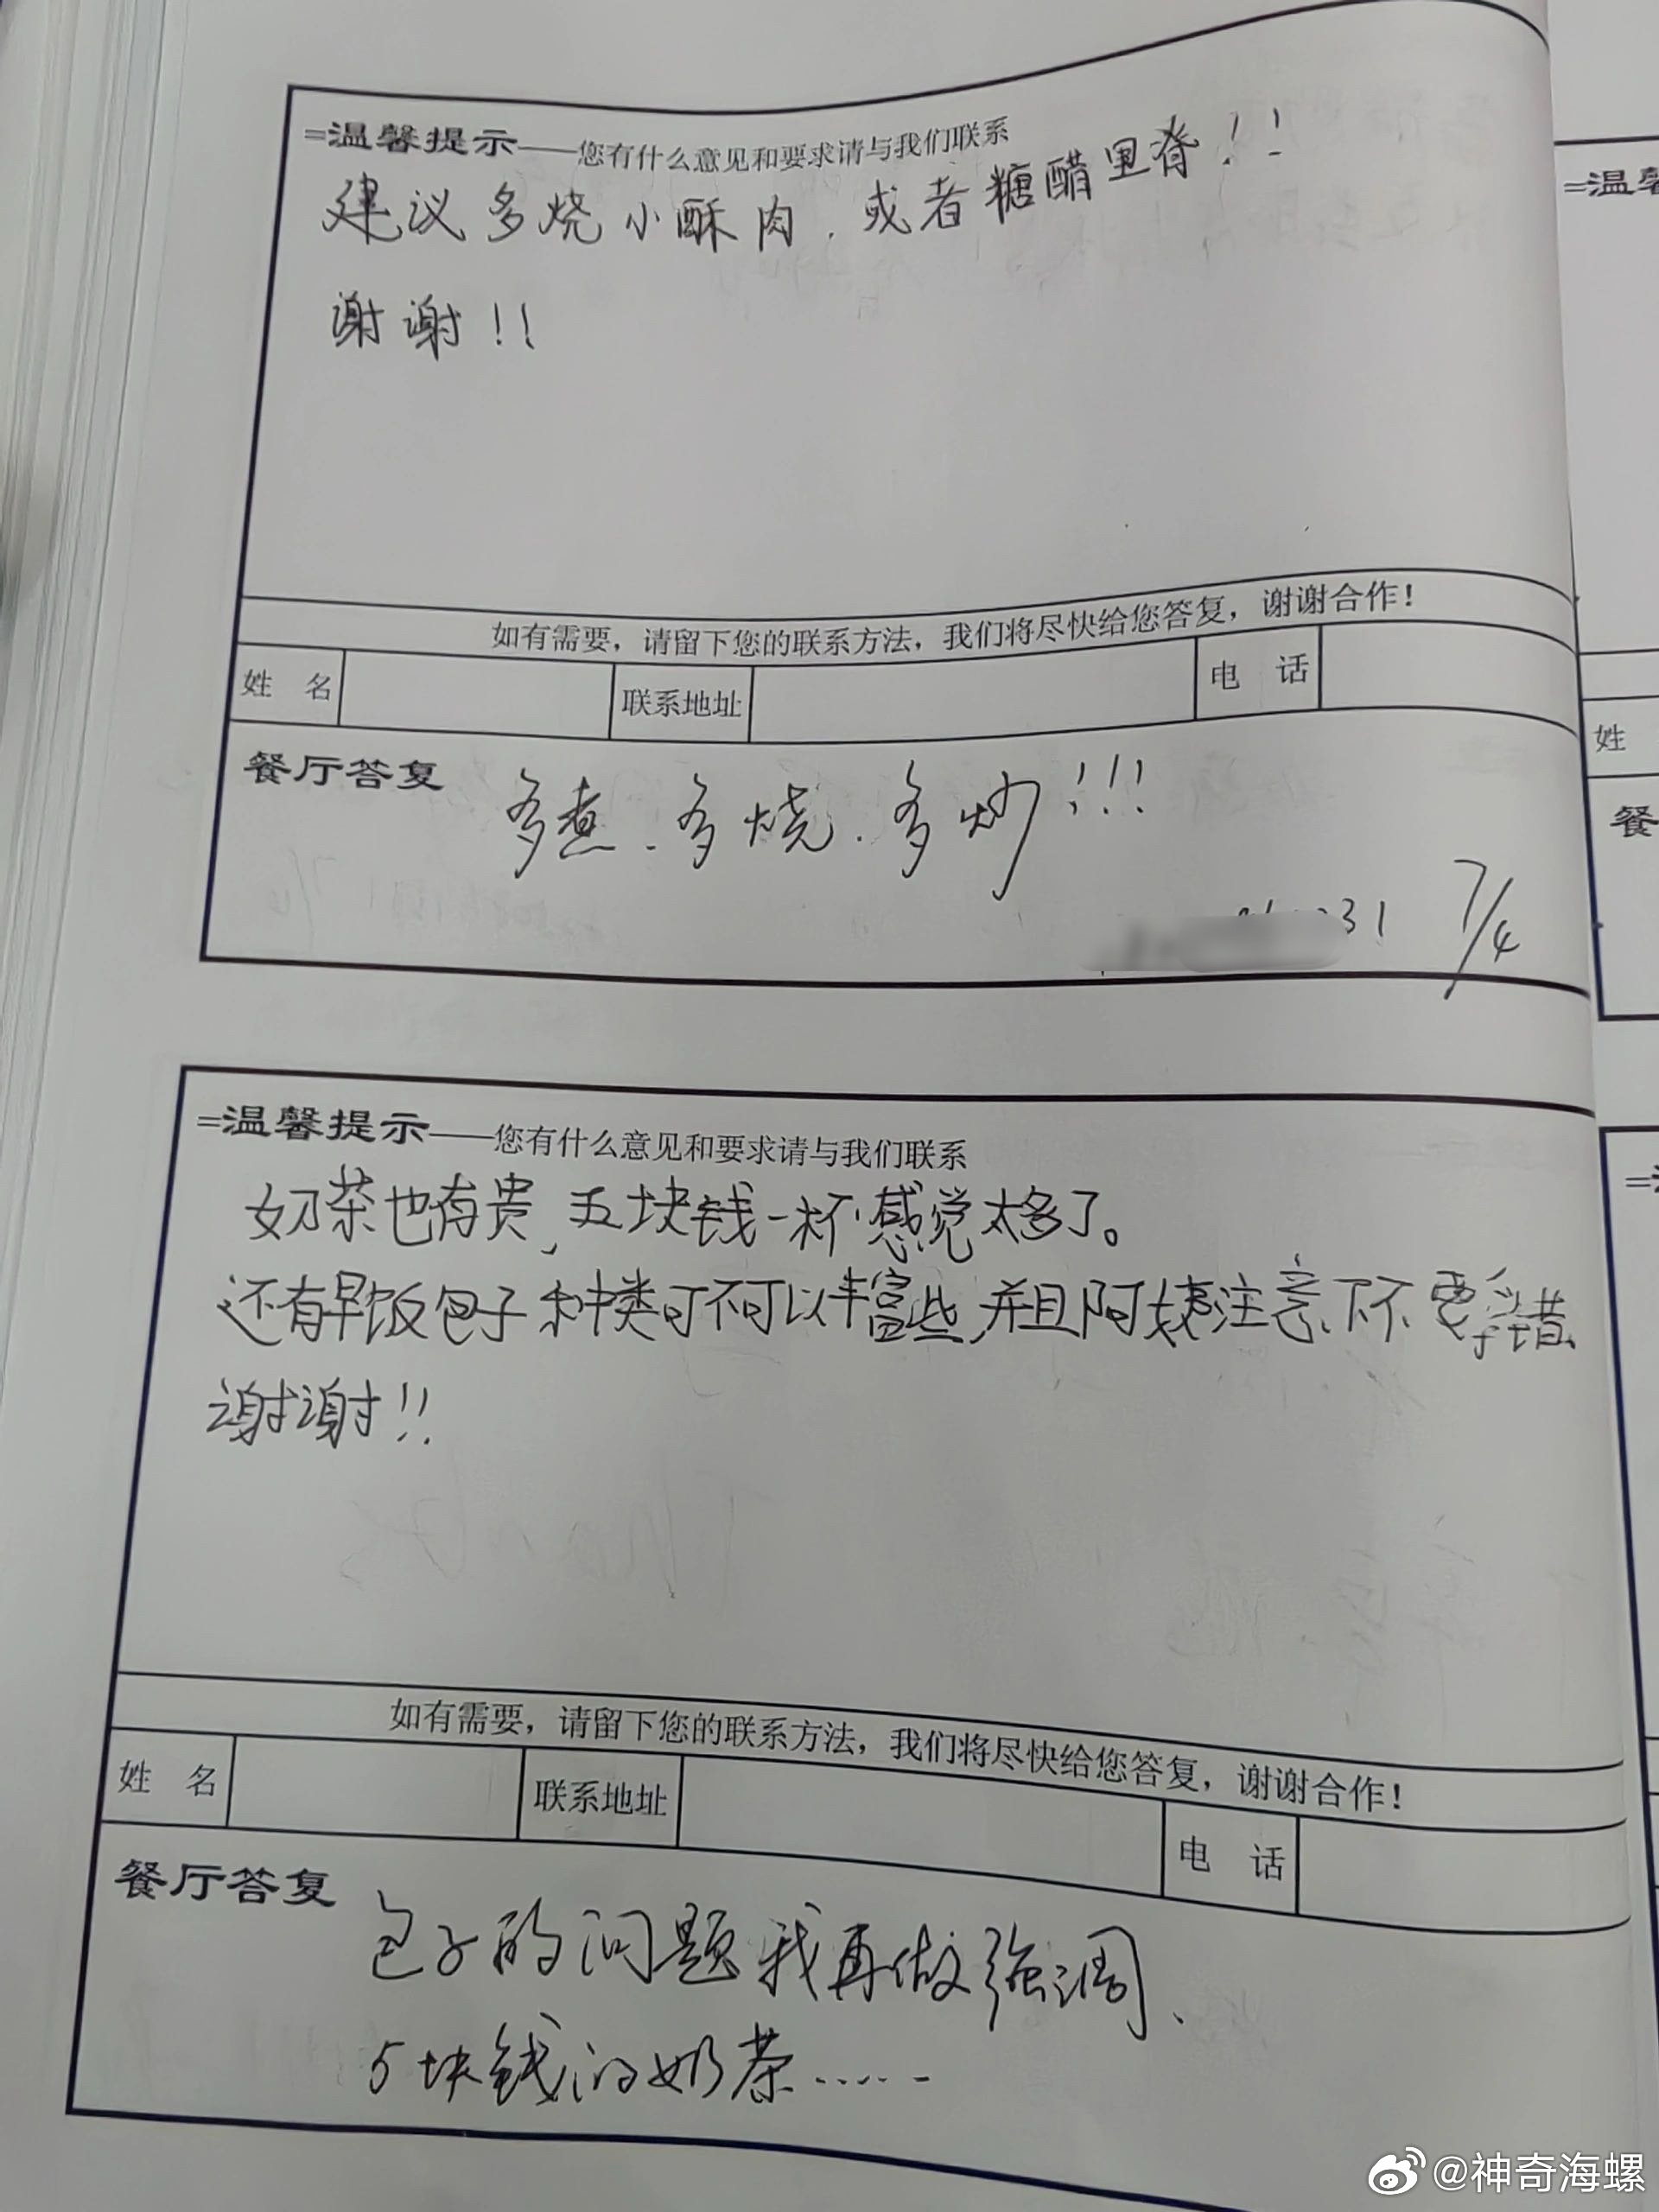 =温馨提示——您有什么意见和要求请与我们联系
建议多烧小酥肉，或者糖醋里脊！！
谢谢！！
如有需要，请留下您的联系方法，我们将尽快给您答复，谢谢合作！
姓 名 联系地址 电 话
餐厅答复
多煮、多烧、多炒！！！
31 7/4
=温馨提示——您有什么意见和要求请与我们联系
奶茶也有贵，五块钱一杯感觉太多了。
还有早饭包子种类可不可以丰富些，并且阿姨注意下不要弄错、
谢谢！！
如有需要，请留下您的联系方法，我们将尽快给您答复，谢谢合作！
姓 名 联系地址 电 话
餐厅答复
包子的问题我再做强调、
5块钱的奶茶……
=温馨
姓
餐
=温
@神奇海螺